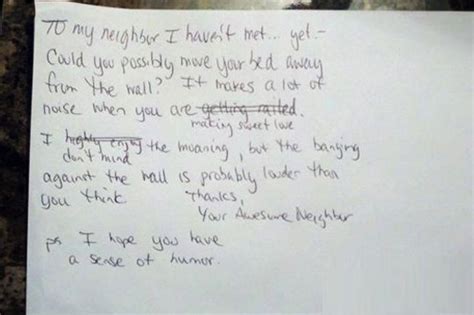 To my neighbor I haven't met... yet-
Could you possibly move your bed away
from the wall? It makes a lot of
noise when you are getting railed.
making sweet love
I highly enjoy the moaning, but the banging
don't mind
against the wall is probably louder than
you think
Thanks,
Your Awesome Neighbor
ps I hope you have
a sense of humor.